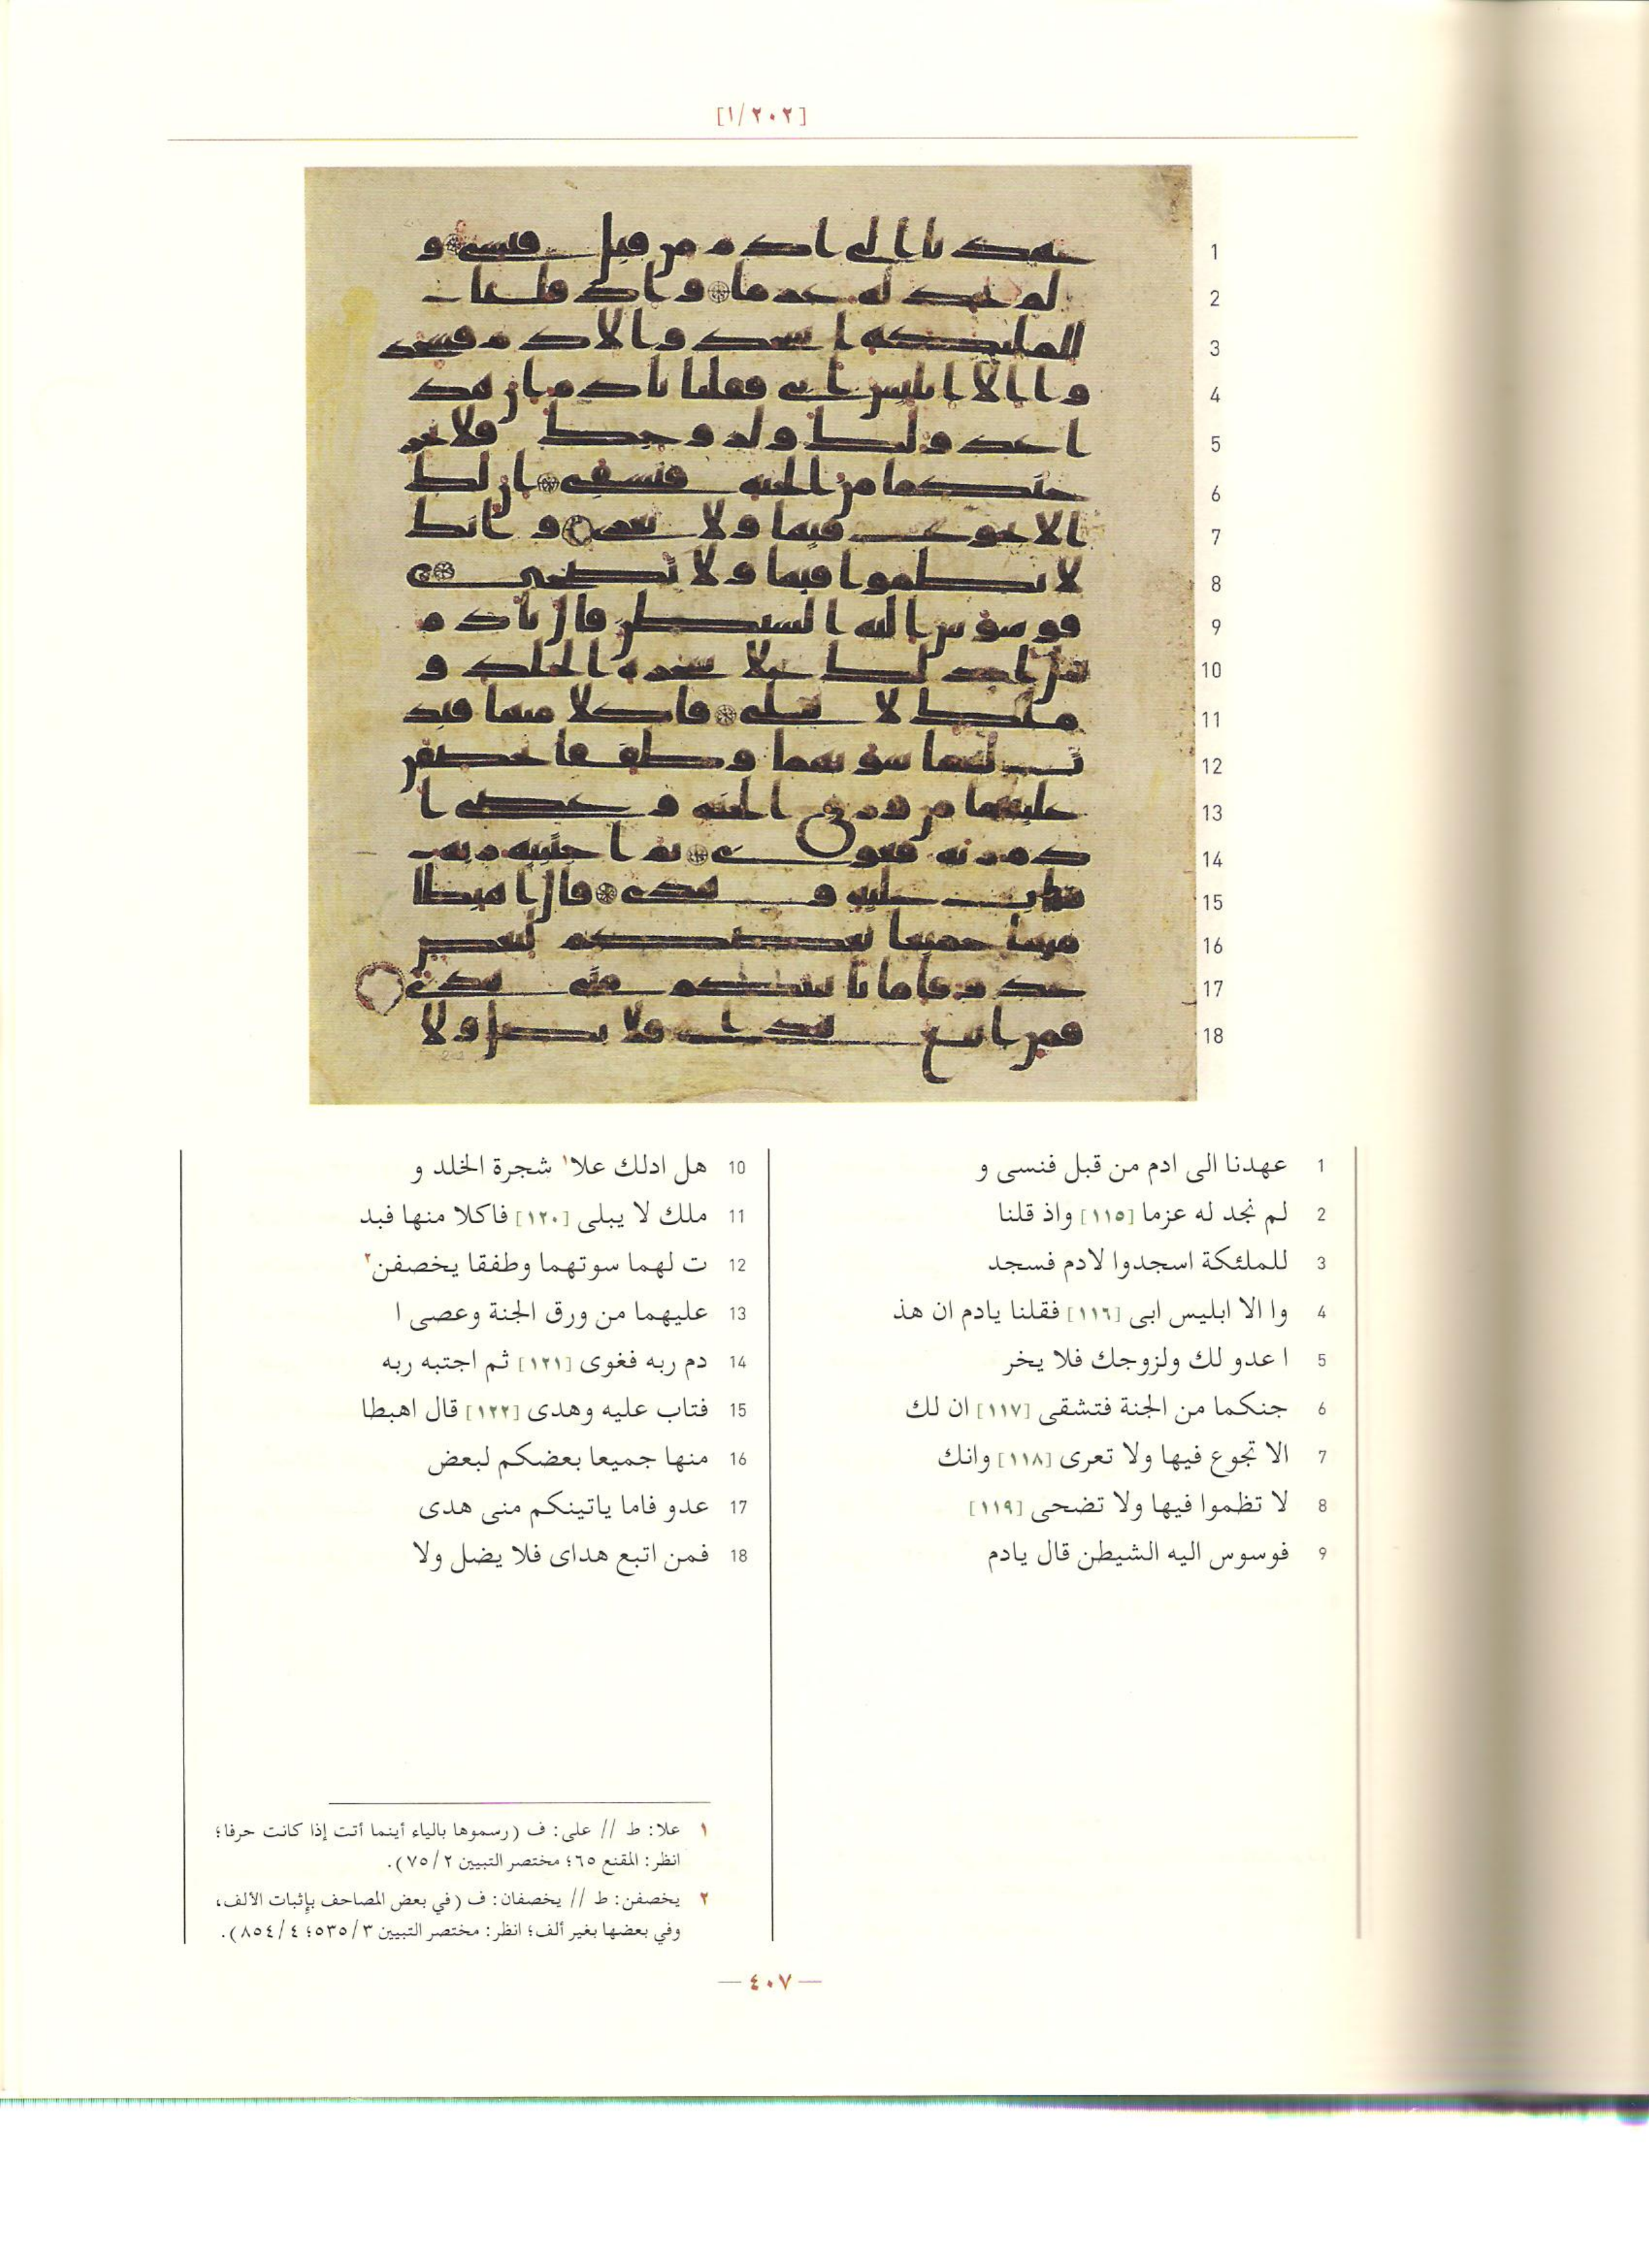 [٢٠٢/١]
1 عهدنا الى ادم من قبل فنسى و
2 لم نجد له عزما [١١٥] واذ قلنا
3 للملئكة اسجدوا لادم فسجد
4 وا الا ابليس ابى [١١٦] فقلنا يادم ان هذ
5 ا عدو لك ولزوجك فلا يخر
6 جنكما من الجنة فتشقى [١١٧] ان لك
7 الا تجوع فيها ولا تعرى [١١٨] وانك
8 لا تظموا فيها ولا تضحى [١١٩]
9 فوسوس اليه الشيطن قال يادم
10 هل ادلك علا١ شجرة الخلد و
11 ملك لا يبلى [١٢٠] فاكلا منها فبد
12 ت لهما سوتهما وطفقا يخصفن٢
13 عليهما من ورق الجنة وعصى ا
14 دم ربه فغوى [١٢١] ثم اجتبه ربه
15 فتاب عليه وهدى [١٢٢] قال اهبطا
16 منها جميعا بعضكم لبعض
17 عدو فاما ياتينكم منى هدى
18 فمن اتبع هداى فلا يضل ولا
١ علا: ط // على: ف (رسموها بالياء أينما أتت إذا كانت حرفا؛
انظر: المقنع ٦٥؛ مختصر التبيين ٧٥/٢).
٢ يخصفن: ط // يخصفان: ف (في بعض المصاحف بإثبات الألف،
وفي بعضها بغير ألف؛ انظر: مختصر التبيين ٥٣٥/٣؛ ٨٥٤/٤).
— ٤٠٧ —